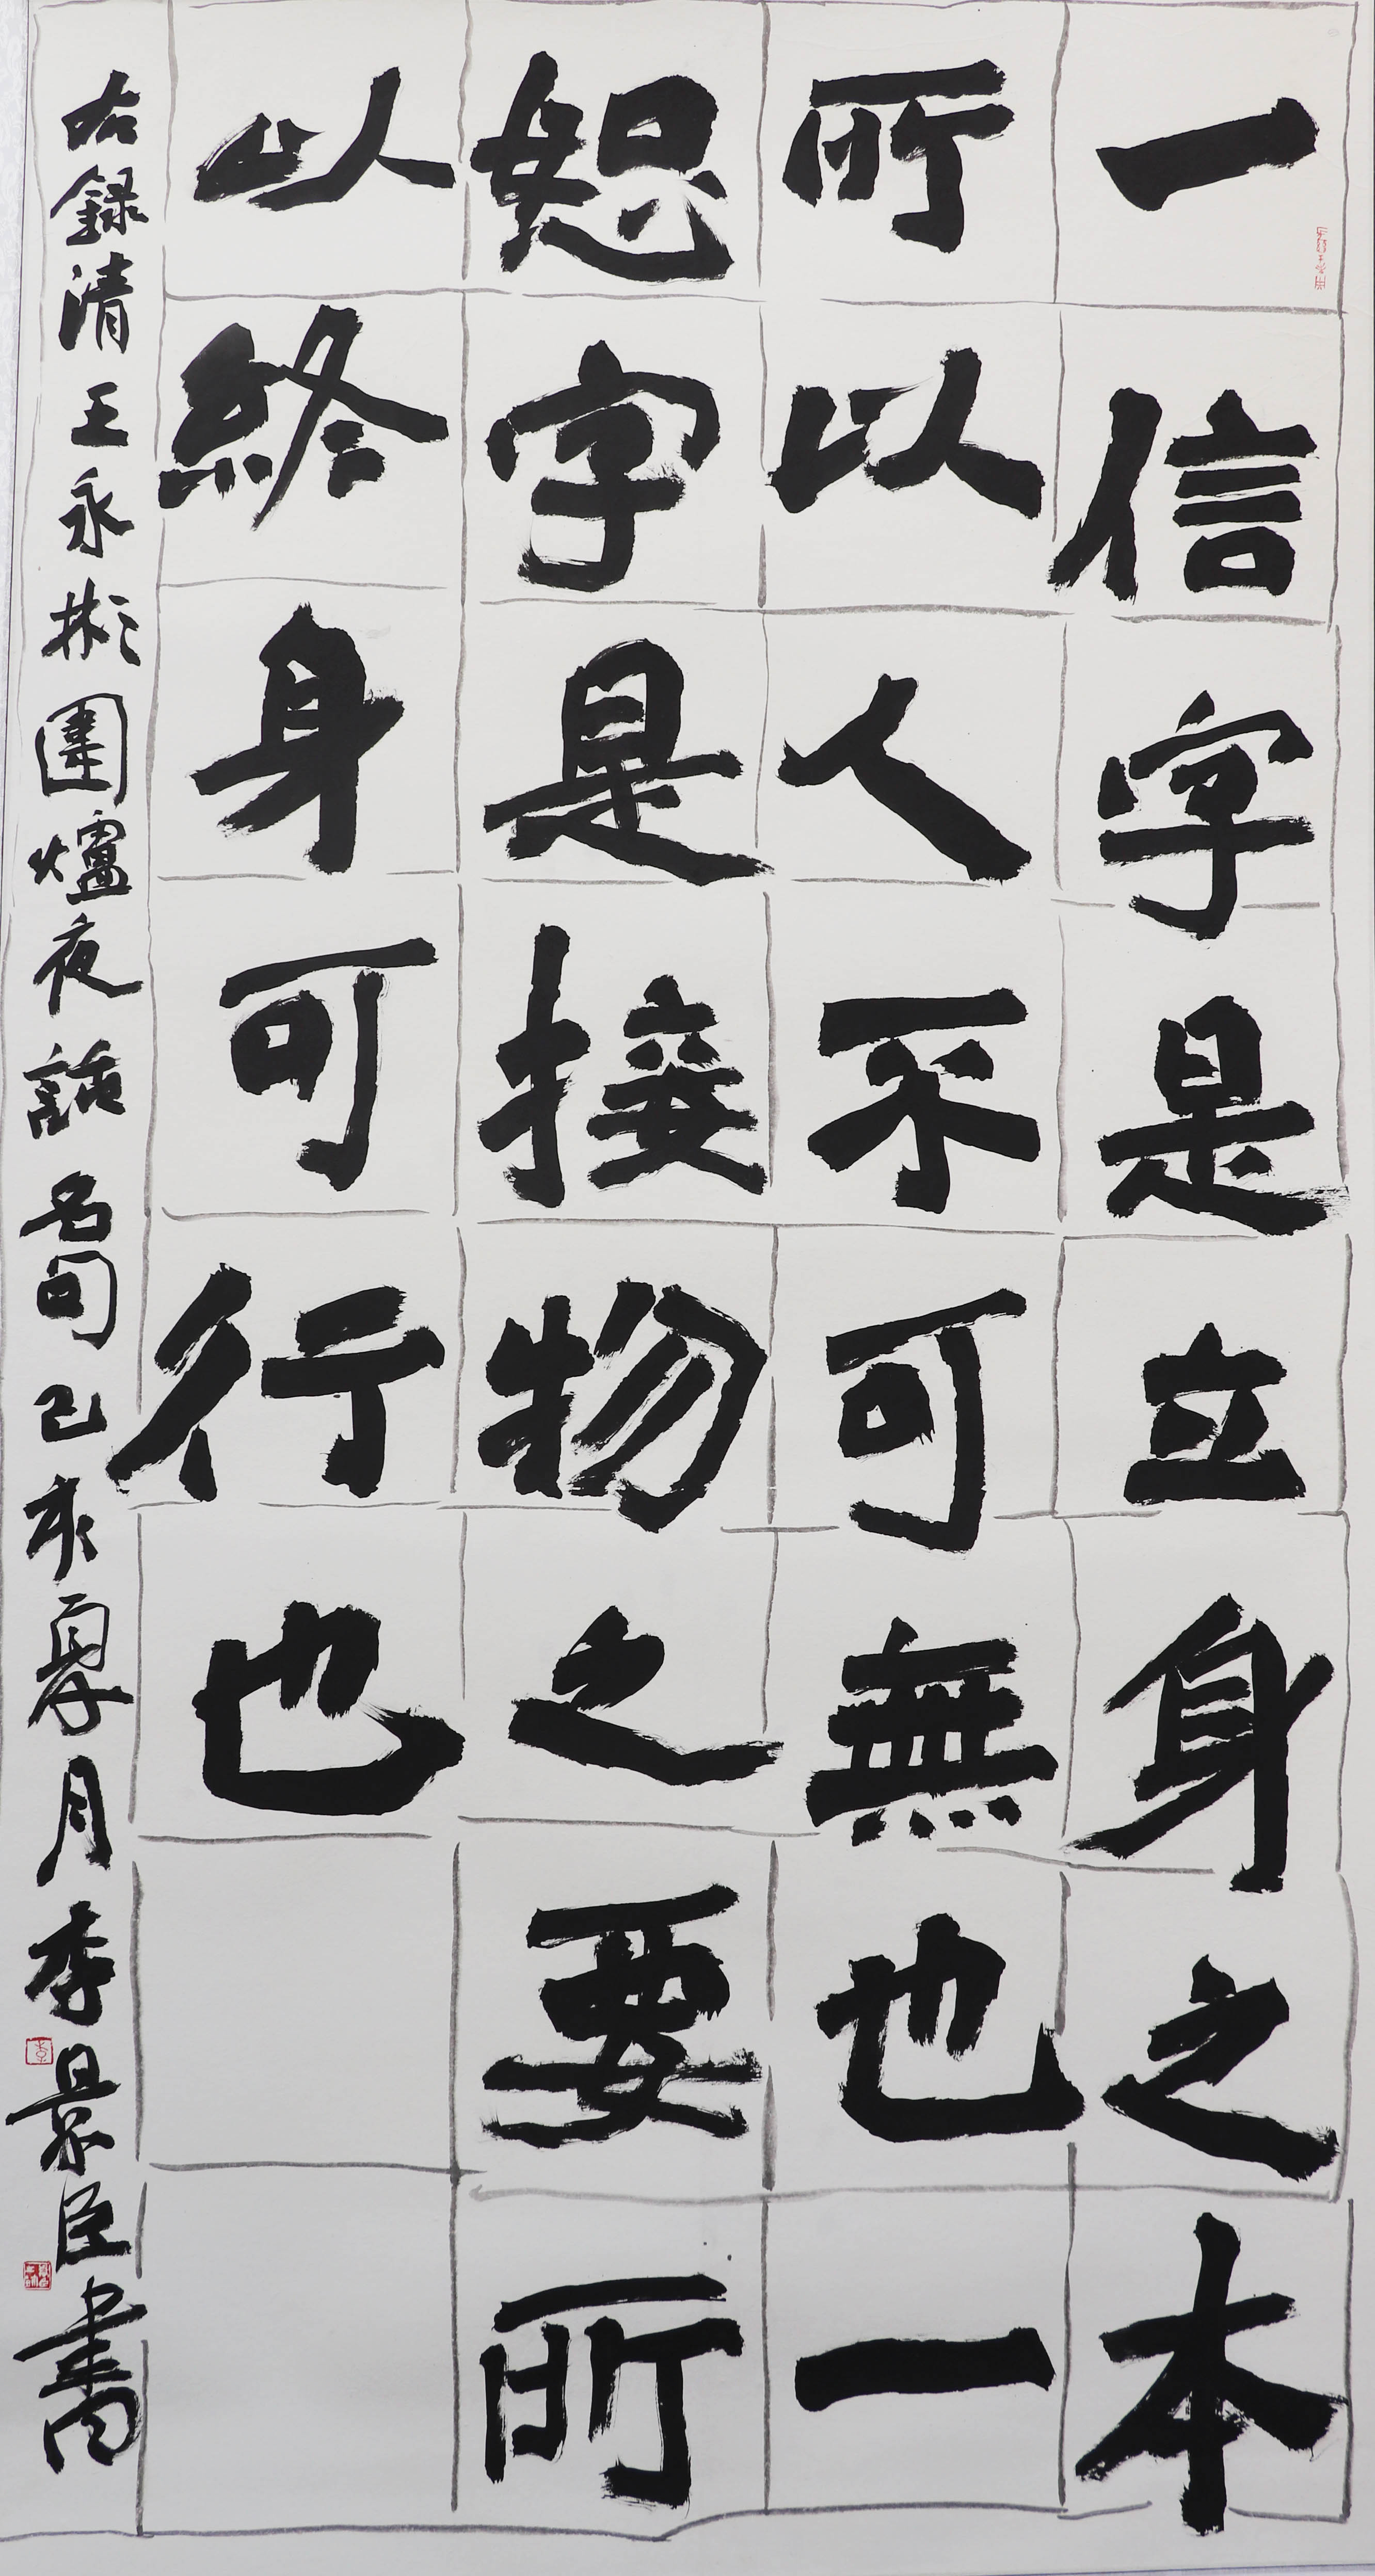 一信字是立身之本
所以人不可無也一
恕字是接物之要所
以終身可行也
右録清王永彬圍爐夜話名句己亥夏月季景臣書